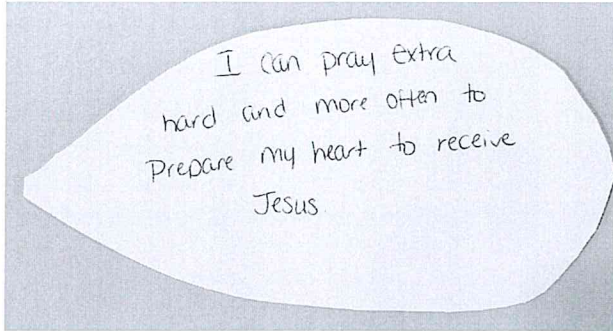 I can pray extra
hard and more often to
Prepare my heart to receive
Jesus.